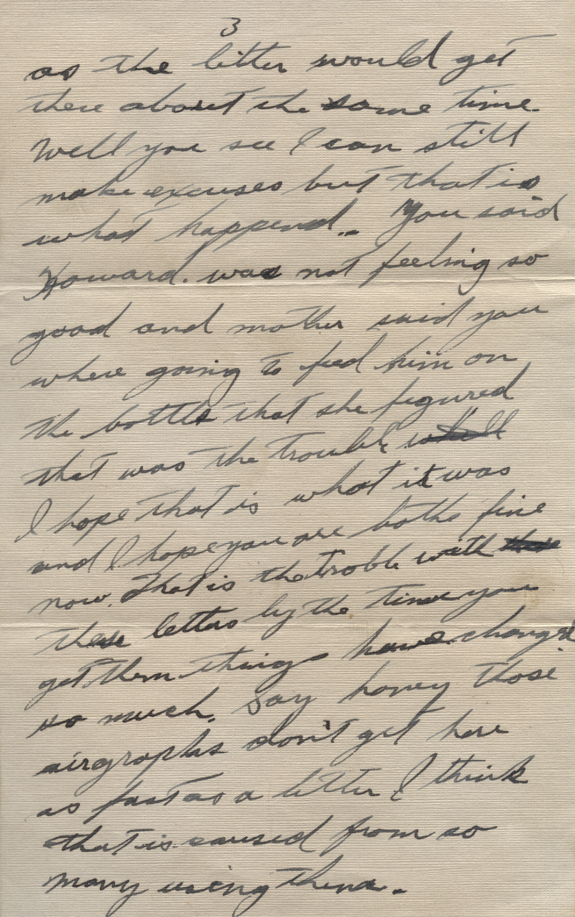 3
as the letter would get
there about the same time.
Well you see I can still
make excuses but that is
what happend.. You said
Howard. was not feeling so
good and mother said you
where going to feed him on
the bottle that she figured
that was the trouble
I hope that is what it was
and I hope you are bothe fine
now. That is the troble with
these letters by the time you
get them things have changed
so much. Say honey those
airgraphs don't get here
as fast as a letter I think
that is caused from so
many using them.